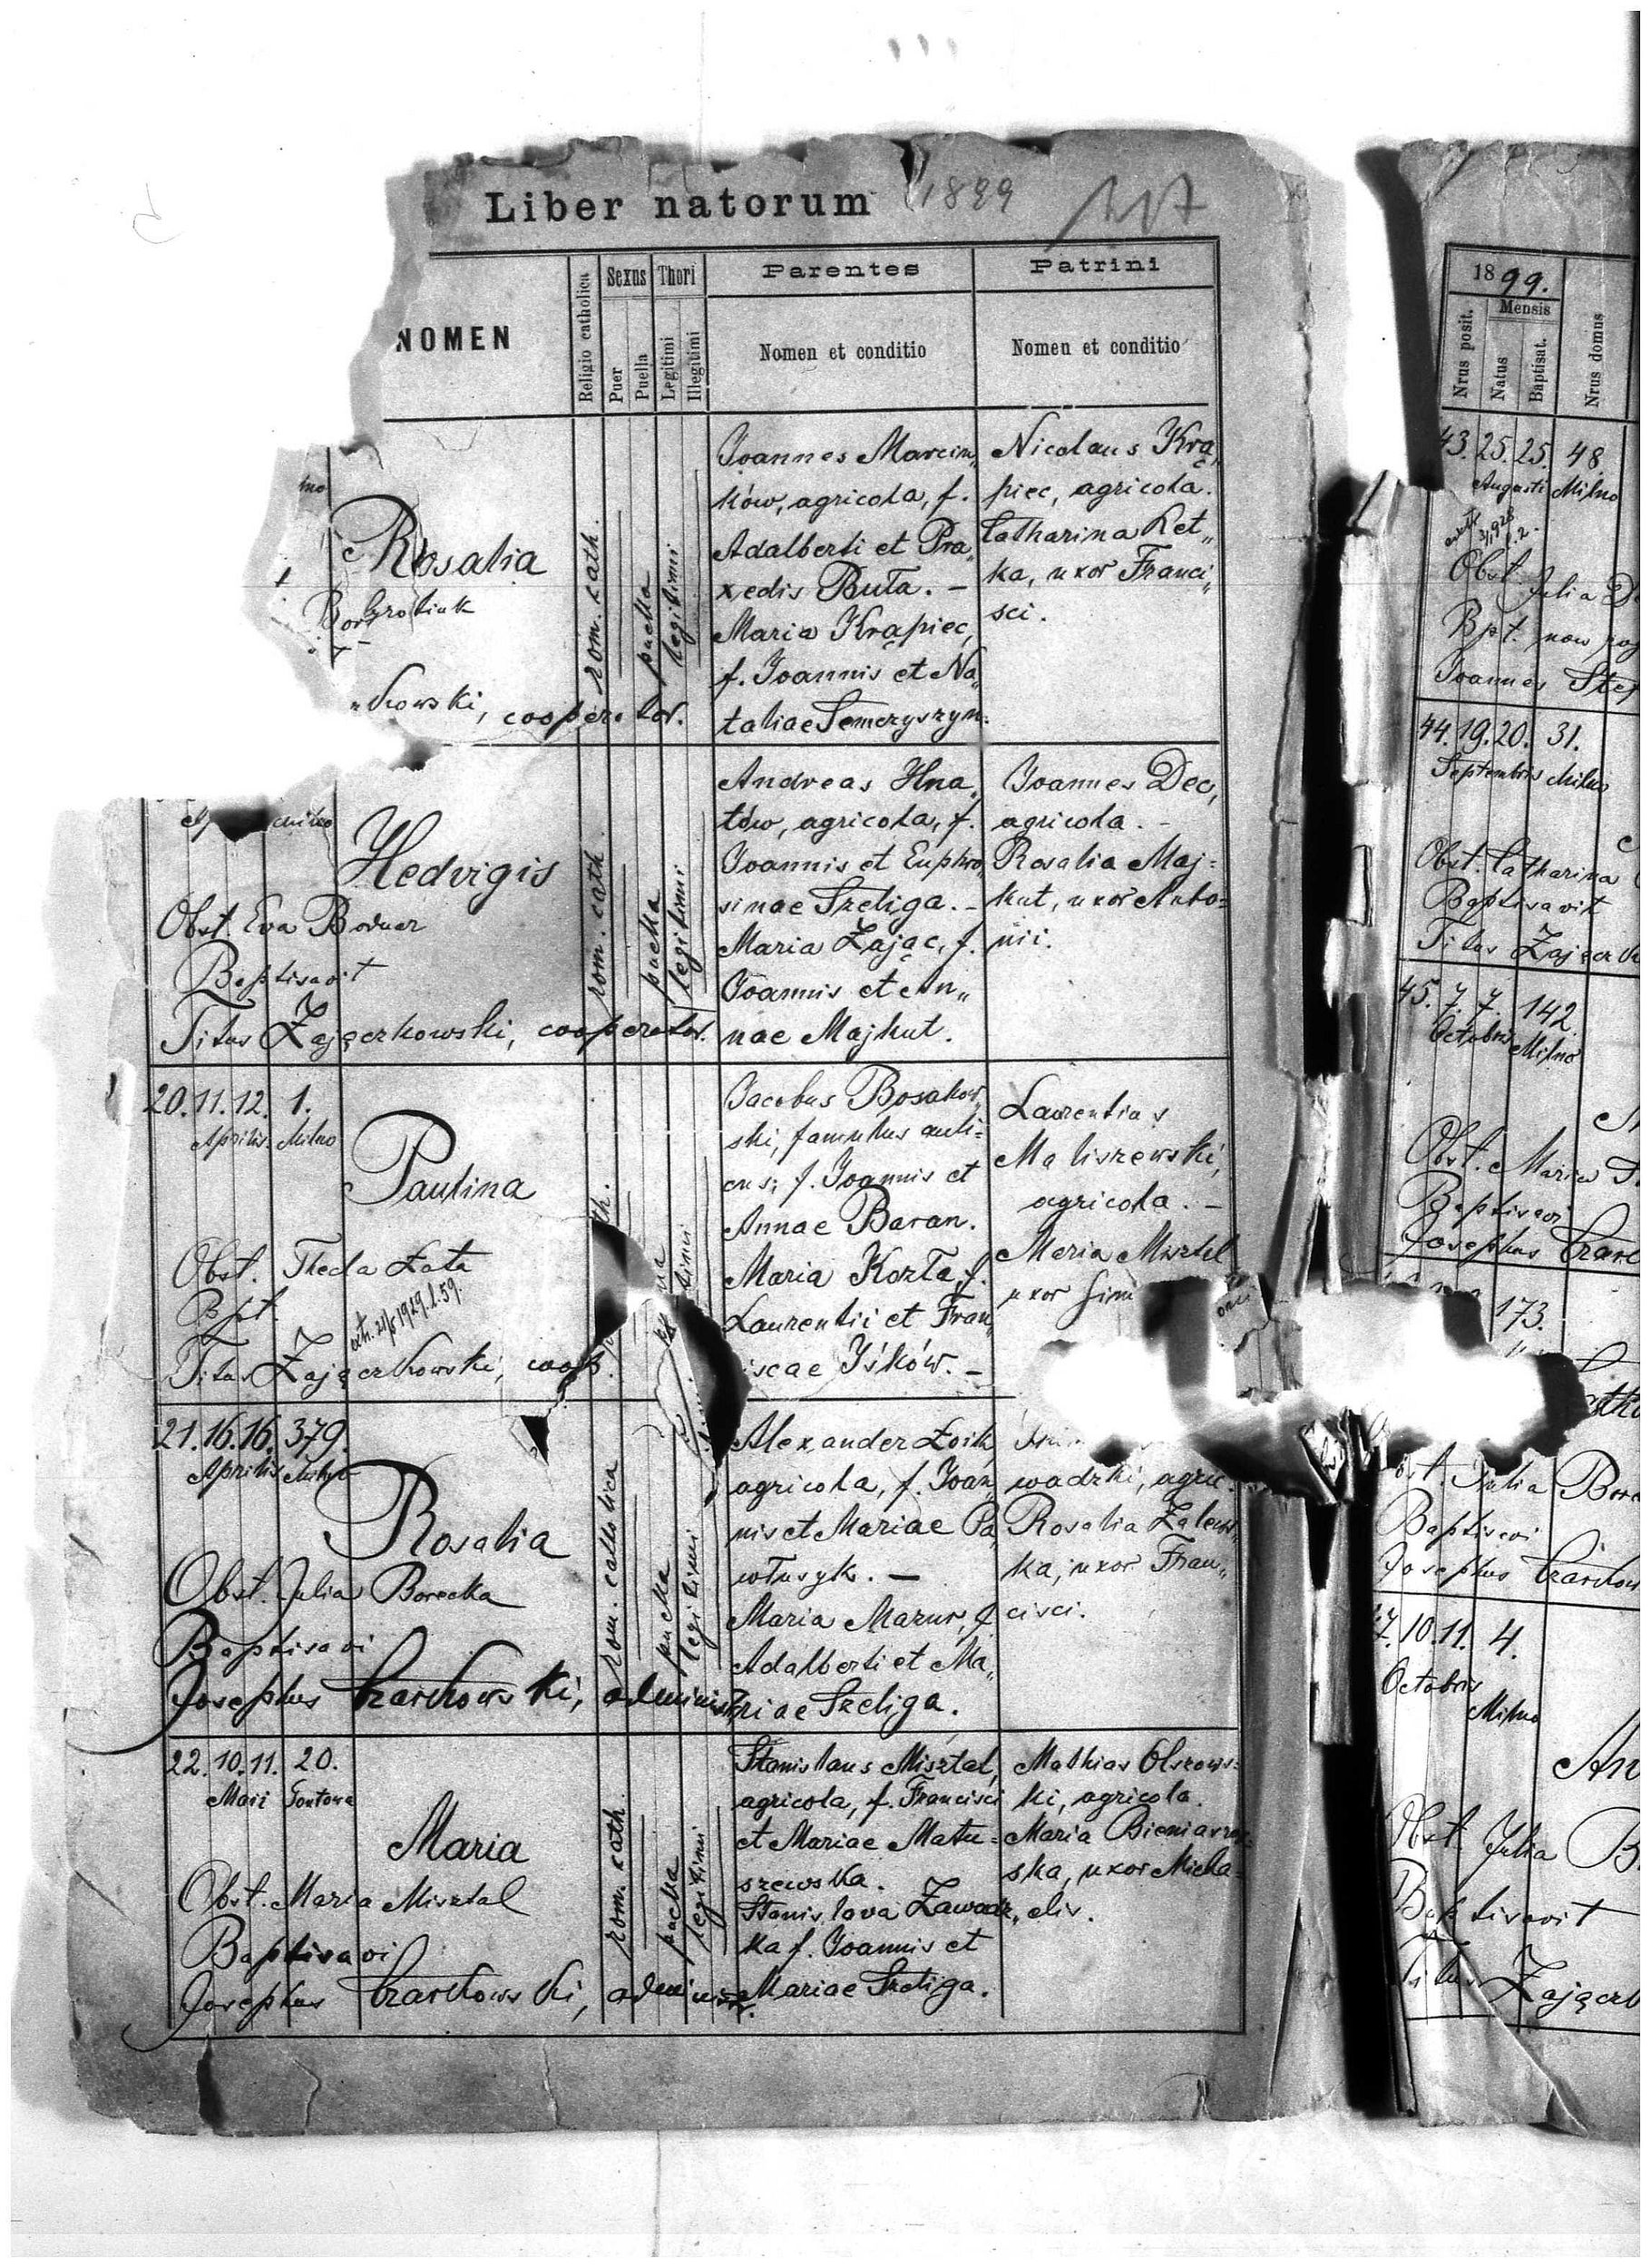 Liber natorum 1899 117
NOMEN
Religio catholica
Sexus
Puer
Puella
Thori
Legitimi
Illegitimi
Parentes
Nomen et conditio
Patrini
Nomen et conditio
Rosalia
kowski, cooperator.
rom. cath.
puella
legitimi
Joannes Marcin„
ków, agricola, f.
Adalberti et Pra„
xedis Buta. –
Maria Krąpiec,
f. Joannis et Na„
taliae Semczyszyn.
Nicolaus Krą„
piec, agricola.
Catharina Ret„
ka, uxor Franci„
sci.
Hedvigis
Obst. Eva Bodnar
Baptisavit
Titus Zajączkowski, cooperator.
rom. cath.
puella
legitimi
Andreas Hna„
tów, agricola, f.
Joannis et Euphro„
sinae Szeliga. –
Maria Zając, f.
Joannis et An„
nae Majkut.
Joannes Dec,
agricola. –
Rosalia Maj=
kut, uxor Anto=
nii.
20. 11. 12. 1.
Aprilis. Milno
Paulina
Obst. Thecla Łata
Bpt.
Titus Zajączkowski, coop.
Jacobus Bosakow„
ski, famulus auli=
cus; f. Joannis et
Annae Baran.
Maria Kozła, f.
Laurentii et Fran„
iscae Iśków. –
Laurentius
Maliszewski,
agricola. –
Maria Misztal
uxor Simi
21. 16. 16. 379.
Aprilis Milno
Rosalia
Obst. Julia Borecka
Baptisavi
Josephus Czarkowski, administr.
rom. catholica
puella
legitimi
Alexander Łoik,
agricola, f. Joan„
nis et Mariae Pa„
włusyk. –
Maria Mazur, f.
Adalberti et Ma„
riae Szeliga.
wadzki, agric.
Rosalia Zalews„
ka, uxor Fran„
cisci.
22. 10. 11. 20.
Maii
Maria
Obst. Maria Misztal
Baptisavi
Josephus Czarkowski, administr.
rom. cath.
puella
legitimi
Stanislaus Misztal,
agricola, f. Francisci
et Mariae Matu=
szewska.
Stanislava Zawadz„
ka f. Joannis et
Mariae Szeliga.
Mathias Olszows=
ki, agricola.
Maria
ska, uxor Micha=
elis.
1899.
Nrus posit.
Mensis
Natus
Baptisat.
Nrus domus
43. 25. 25. 48.
Augusti Milno
Obst. Julia
Bpt.
Joannes
44. 19. 20. 31.
Septembris Milno
Obst. Catharina
Baptisavit
Titus Zającz
45. 7. 7. 142.
Octobris Milno
Obst. Maria
Baptisavi
Josephus Czark
173.
Julia Bore
Baptisavi
Josephus Czarkow
7. 10. 11. 4.
Octobris
Milno
An
Obst. Julia B
Baptisavit
Titus Zającz